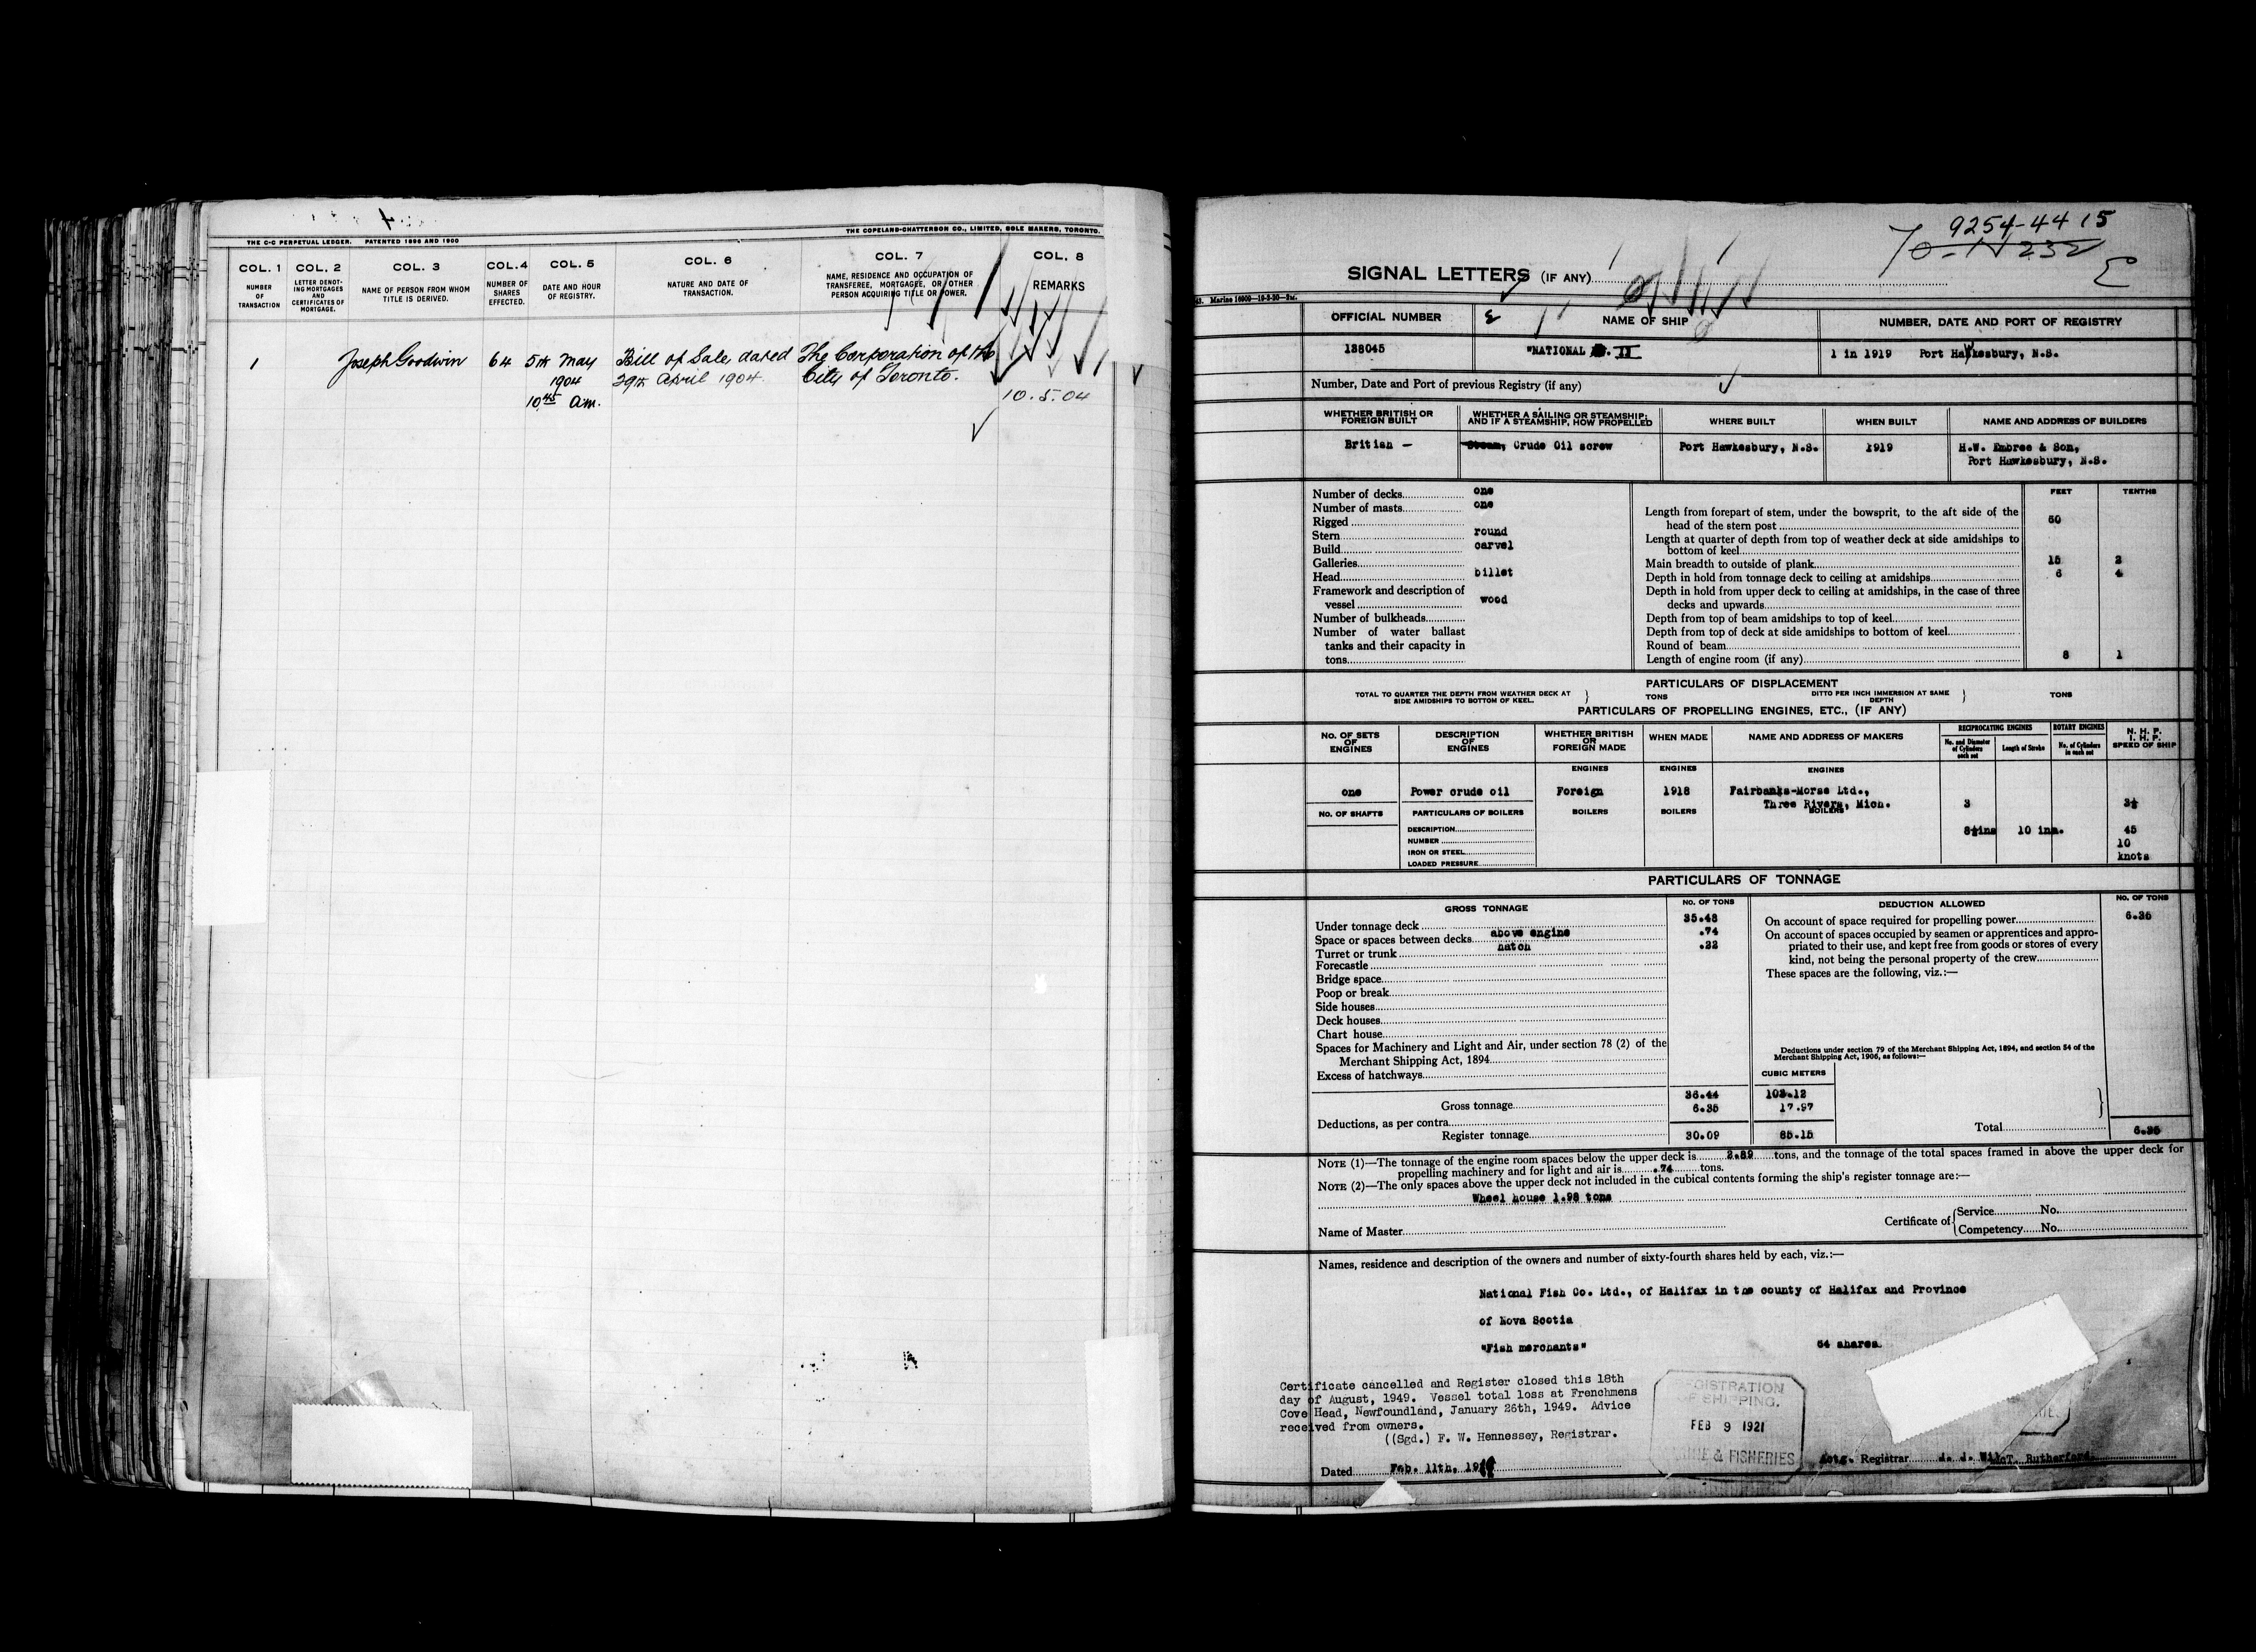 THE C-C PERPETUAL LEDGER. PATENTED 1896 AND 1900
THE COPELAND-CHATTERSON CO., LIMITED, SOLE MAKERS, TORONTO.
COL. 1 COL. 2 COL. 3 COL. 4 COL. 5 COL. 6 COL. 7 COL. 8
NUMBER OF TRANSACTION
LETTER DENOTING MORTGAGES AND CERTIFICATES OF MORTGAGE.
NAME OF PERSON FROM WHOM TITLE IS DERIVED.
NUMBER OF SHARES EFFECTED.
DATE AND HOUR OF REGISTRY.
NATURE AND DATE OF TRANSACTION.
NAME, RESIDENCE AND OCCUPATION OF TRANSFEREE, MORTGAGEE, OR OTHER PERSON ACQUIRING TITLE OR POWER.
REMARKS
1 Joseph Goodwin 64 5th May Bill of Sale dated The Corporation of the
1904 29th April 1904. City of Toronto.
10.45 a.m. 10.5.04
9254-44 15
SIGNAL LETTERS (IF ANY)
OFFICIAL NUMBER NAME OF SHIP NUMBER, DATE AND PORT OF REGISTRY
138045 "NATIONAL II 1 in 1919 Port Hawkesbury, N.S.
Number, Date and Port of previous Registry (if any)
WHETHER BRITISH OR FOREIGN BUILT
WHETHER A SAILING OR STEAMSHIP; AND IF A STEAMSHIP, HOW PROPELLED
WHERE BUILT
WHEN BUILT
NAME AND ADDRESS OF BUILDERS
British — Steam, Crude Oil screw Port Hawkesbury, N.S. 1919 H.W. Embree & Son,
Port Hawkesbury, N.S.
Number of decks one
Number of masts one
Rigged
Stern round
Build carvel
Galleries
Head billet
Framework and description of
vessel wood
Number of bulkheads
Number of water ballast
tanks and their capacity in
tons
FEET TENTHS
Length from forepart of stem, under the bowsprit, to the aft side of the
head of the stern post 50
Length at quarter of depth from top of weather deck at side amidships to
bottom of keel
Main breadth to outside of plank 15 2
Depth in hold from tonnage deck to ceiling at amidships 6 4
Depth in hold from upper deck to ceiling at amidships, in the case of three
decks and upwards
Depth from top of beam amidships to top of keel
Depth from top of deck at side amidships to bottom of keel
Round of beam
Length of engine room (if any) 8 1
PARTICULARS OF DISPLACEMENT
TOTAL TO QUARTER THE DEPTH FROM WEATHER DECK AT SIDE AMIDSHIPS TO BOTTOM OF KEEL. } TONS DITTO PER INCH IMMERSION AT SAME DEPTH } TONS
PARTICULARS OF PROPELLING ENGINES, ETC., (IF ANY)
NO. OF SETS OF ENGINES
DESCRIPTION OF ENGINES
WHETHER BRITISH OR FOREIGN MADE
WHEN MADE
NAME AND ADDRESS OF MAKERS
RECIPROCATING ENGINES
No. and Diameter of Cylinders each set
Length of Stroke
ROTARY ENGINES
No. of Cylinders in each set
N. H. P.
I. H. P.
SPEED OF SHIP
ENGINES ENGINES ENGINES
one Power crude oil Foreign 1918 Fairbanks-Morse Ltd.,
Three Rivers, Mich. 3
NO. OF SHAFTS PARTICULARS OF BOILERS BOILERS BOILERS BOILERS
DESCRIPTION 10 ins. 45
NUMBER 10
IRON OR STEEL knots
LOADED PRESSURE
PARTICULARS OF TONNAGE
GROSS TONNAGE NO. OF TONS
Under tonnage deck 35.48
Space or spaces between decks above engine .74
Turret or trunk hatch .22
Forecastle
Bridge space
Poop or break
Side houses
Deck houses
Chart house
Spaces for Machinery and Light and Air, under section 78 (2) of the
Merchant Shipping Act, 1894
Excess of hatchways
DEDUCTION ALLOWED NO. OF TONS
On account of space required for propelling power 6.35
On account of spaces occupied by seamen or apprentices and appro-
priated to their use, and kept free from goods or stores of every
kind, not being the personal property of the crew
These spaces are the following, viz.:—
Deductions under section 79 of the Merchant Shipping Act, 1894, and section 54 of the
Merchant Shipping Act, 1906, as follows:—
CUBIC METERS
Gross tonnage 36.44 103.12
Deductions, as per contra 6.35 17.97
Register tonnage 30.09 85.15
Total 6.35
NOTE (1)—The tonnage of the engine room spaces below the upper deck is 2.89 tons, and the tonnage of the total spaces framed in above the upper deck for
propelling machinery and for light and air is .74 tons.
NOTE (2)—The only spaces above the upper deck not included in the cubical contents forming the ship's register tonnage are:—
Wheel house 1.98 tons
Name of Master
Certificate of { Service No.
Competency No.
Names, residence and description of the owners and number of sixty-fourth shares held by each, viz.:—
National Fish Co. Ltd., of Halifax in the county of Halifax and Province
of Nova Scotia
"Fish merchants" 64 shares.
Certificate cancelled and Register closed this 18th
day of August, 1949. Vessel total loss at Frenchmens
Cove Head, Newfoundland, January 26th, 1949. Advice
received from owners.
((Sgd.) F. W. Hennessey, Registrar.
REGISTRATION
OF SHIPPING.
FEB 9 1921
MARINE & FISHERIES
Dated Feb. 11th,
Actg. Registrar Rutherford.